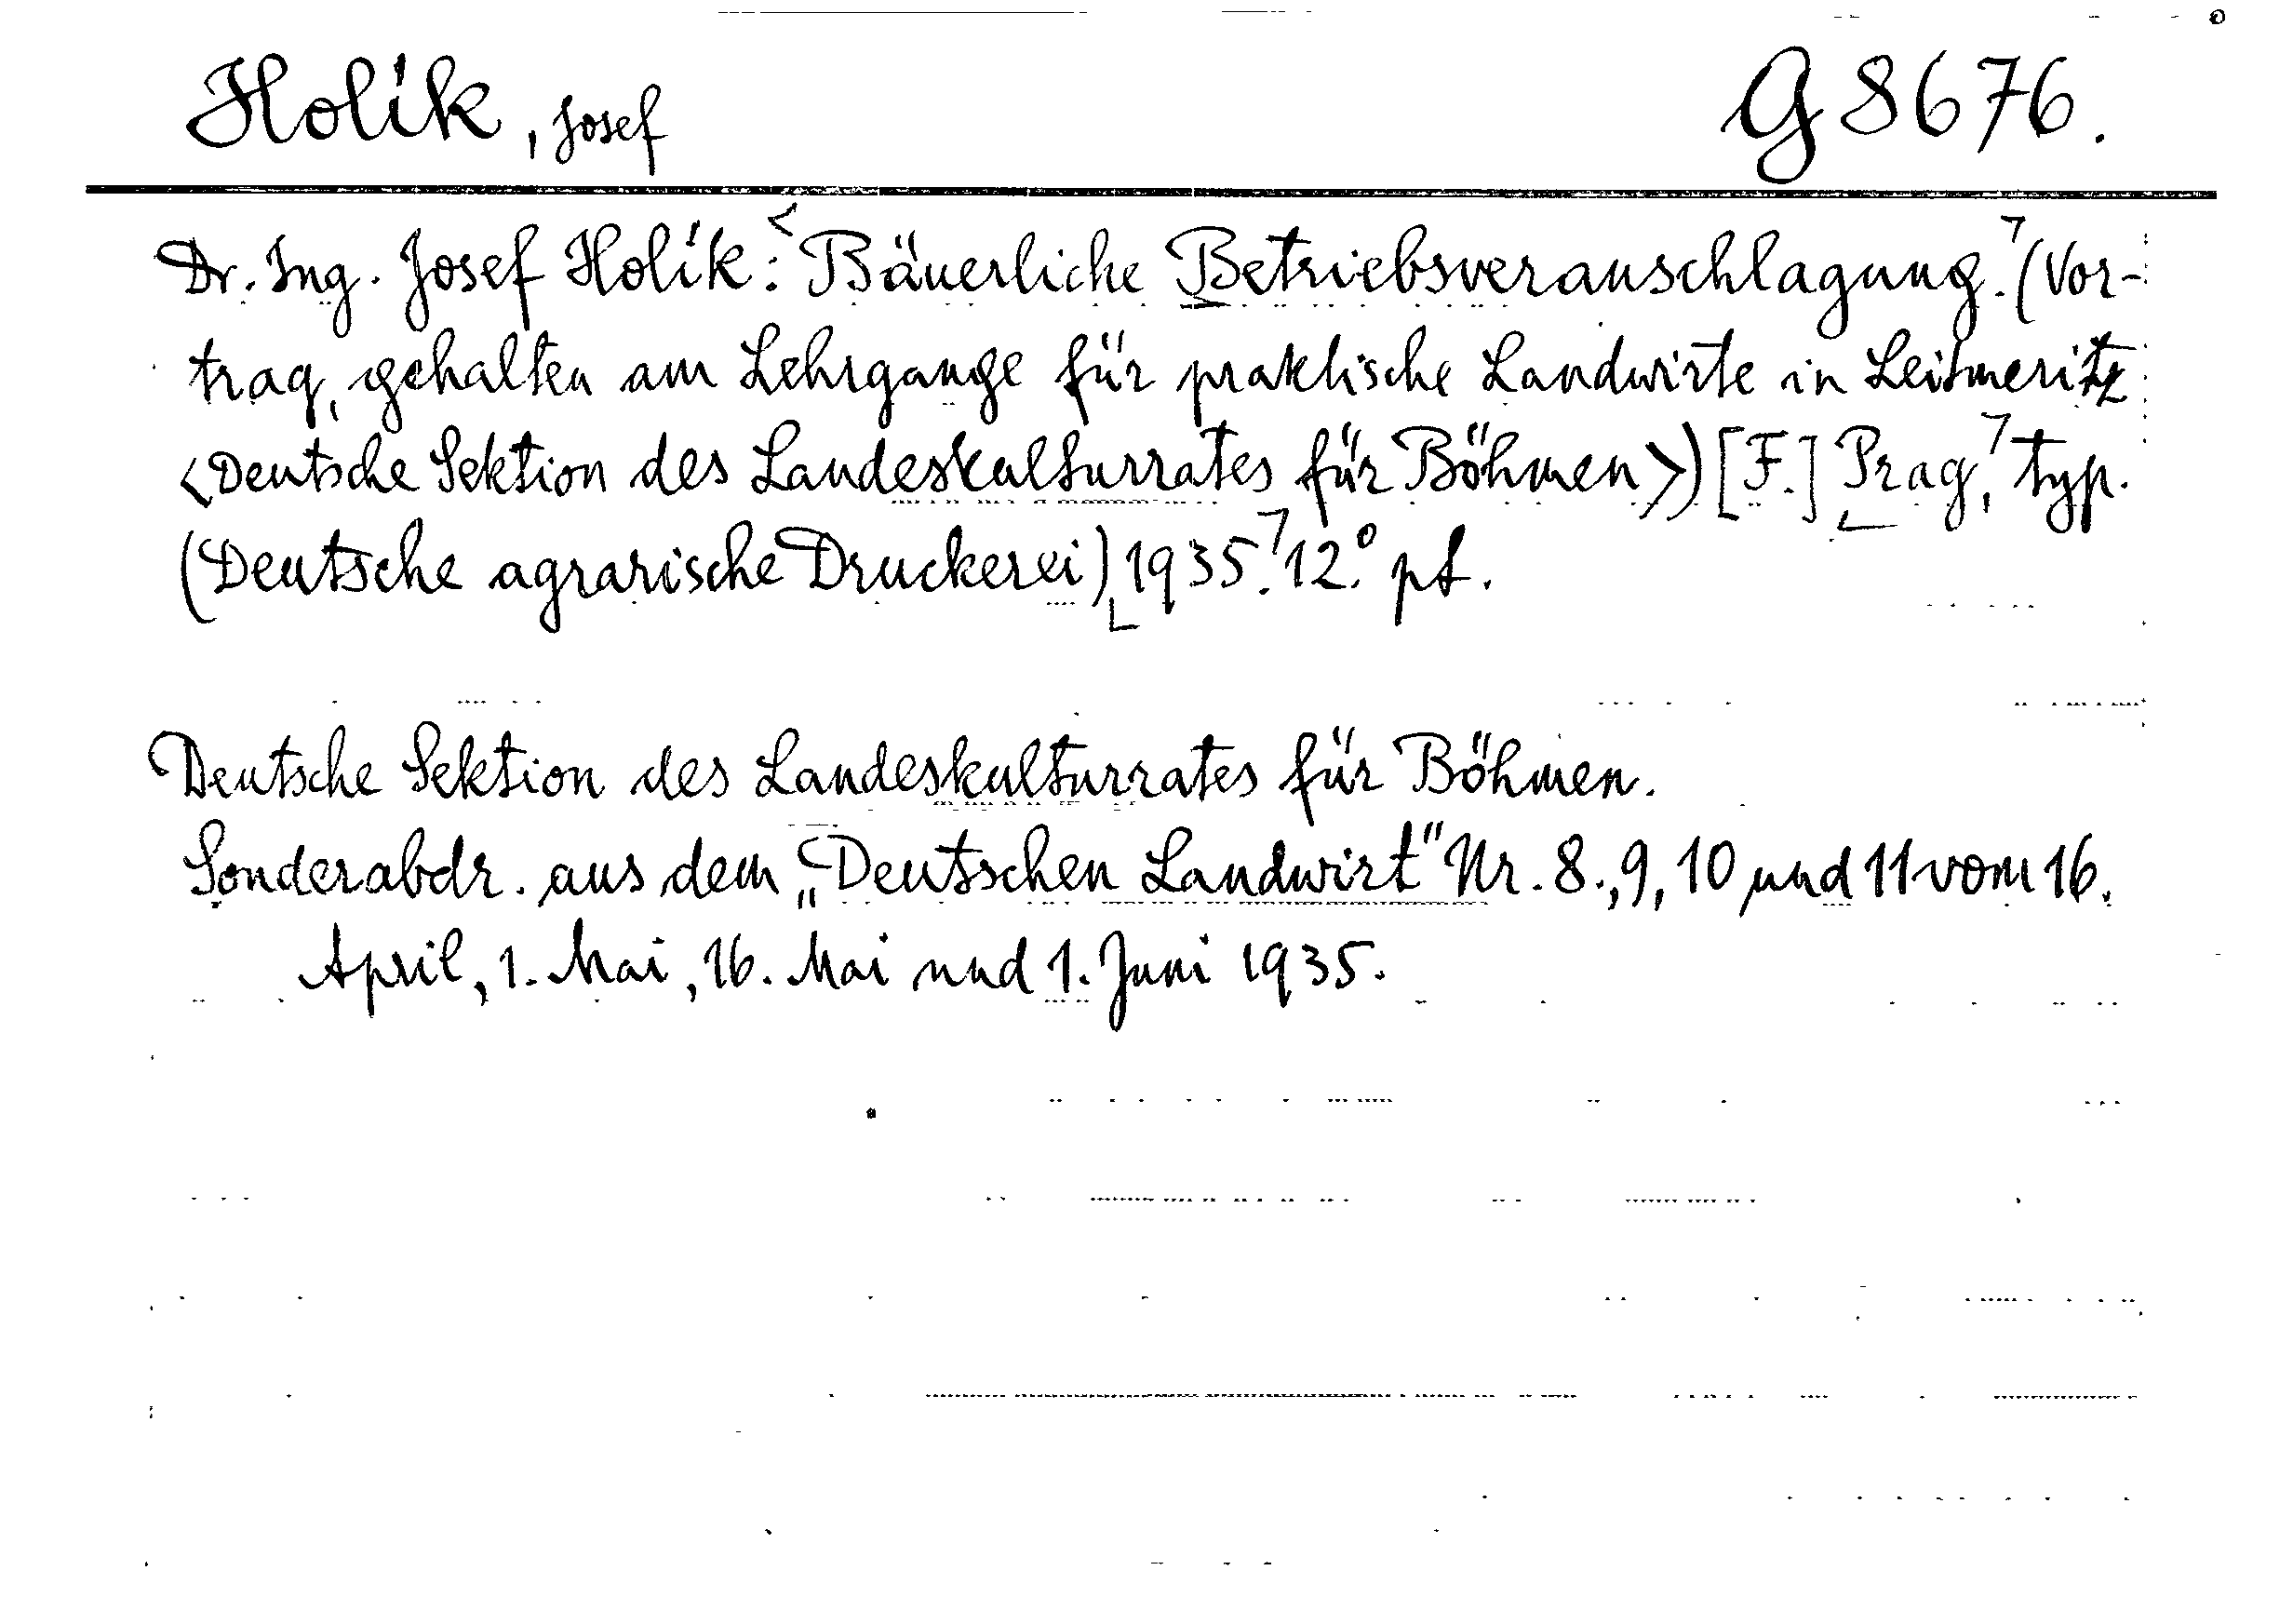 Holík, Josef G 8676.
Dr. Ing. Josef Holík: <Bäuerliche Betriebsveranschlagung.⁊ (Vor-
trag, gehalten am Lehrgange für praktische Landwirte in Leitmeritz
<Deutsche Sektion des Landeskulturrates für Böhmen>) [F.] Prag,⁊ typ.
(Deutsche agrarische Druckerei) 1935.⁊ 12.° pf.
Deutsche Sektion des Landeskulturrates für Böhmen.
Sonderabdr. aus dem „Deutschen Landwirt" Nr. 8., 9, 10 und 11 vom 16.
April, 1. Mai, 16. Mai und 1. Juni 1935.